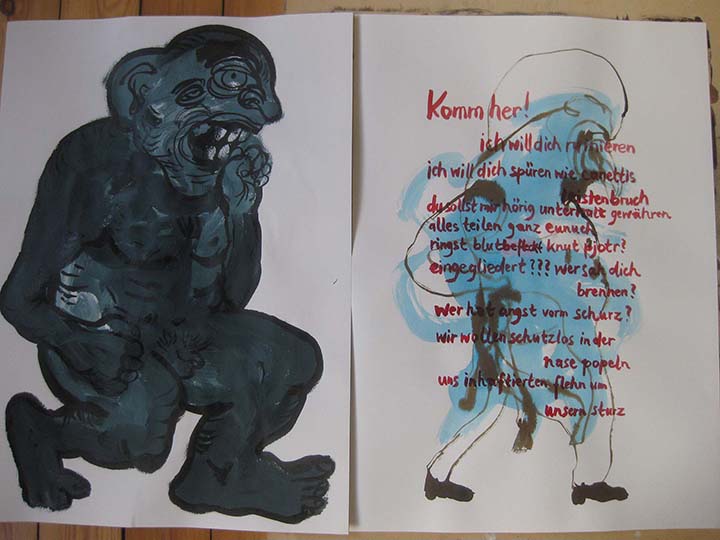 Komm her!
ich will dich ruinieren
ich will dich spüren wie canettis
leistenbruch
du sollst mir hörig unterhalt gewähren
alles teilen ganz eunuch
ringst blutbefleckt knut pjotr?
eingegliedert??? wer sah dich
brennen?
wer hat angst vorm schurz?
wir wollen schutzlos in der
nase popeln
uns inhaftierten flehn um
unsern sturz